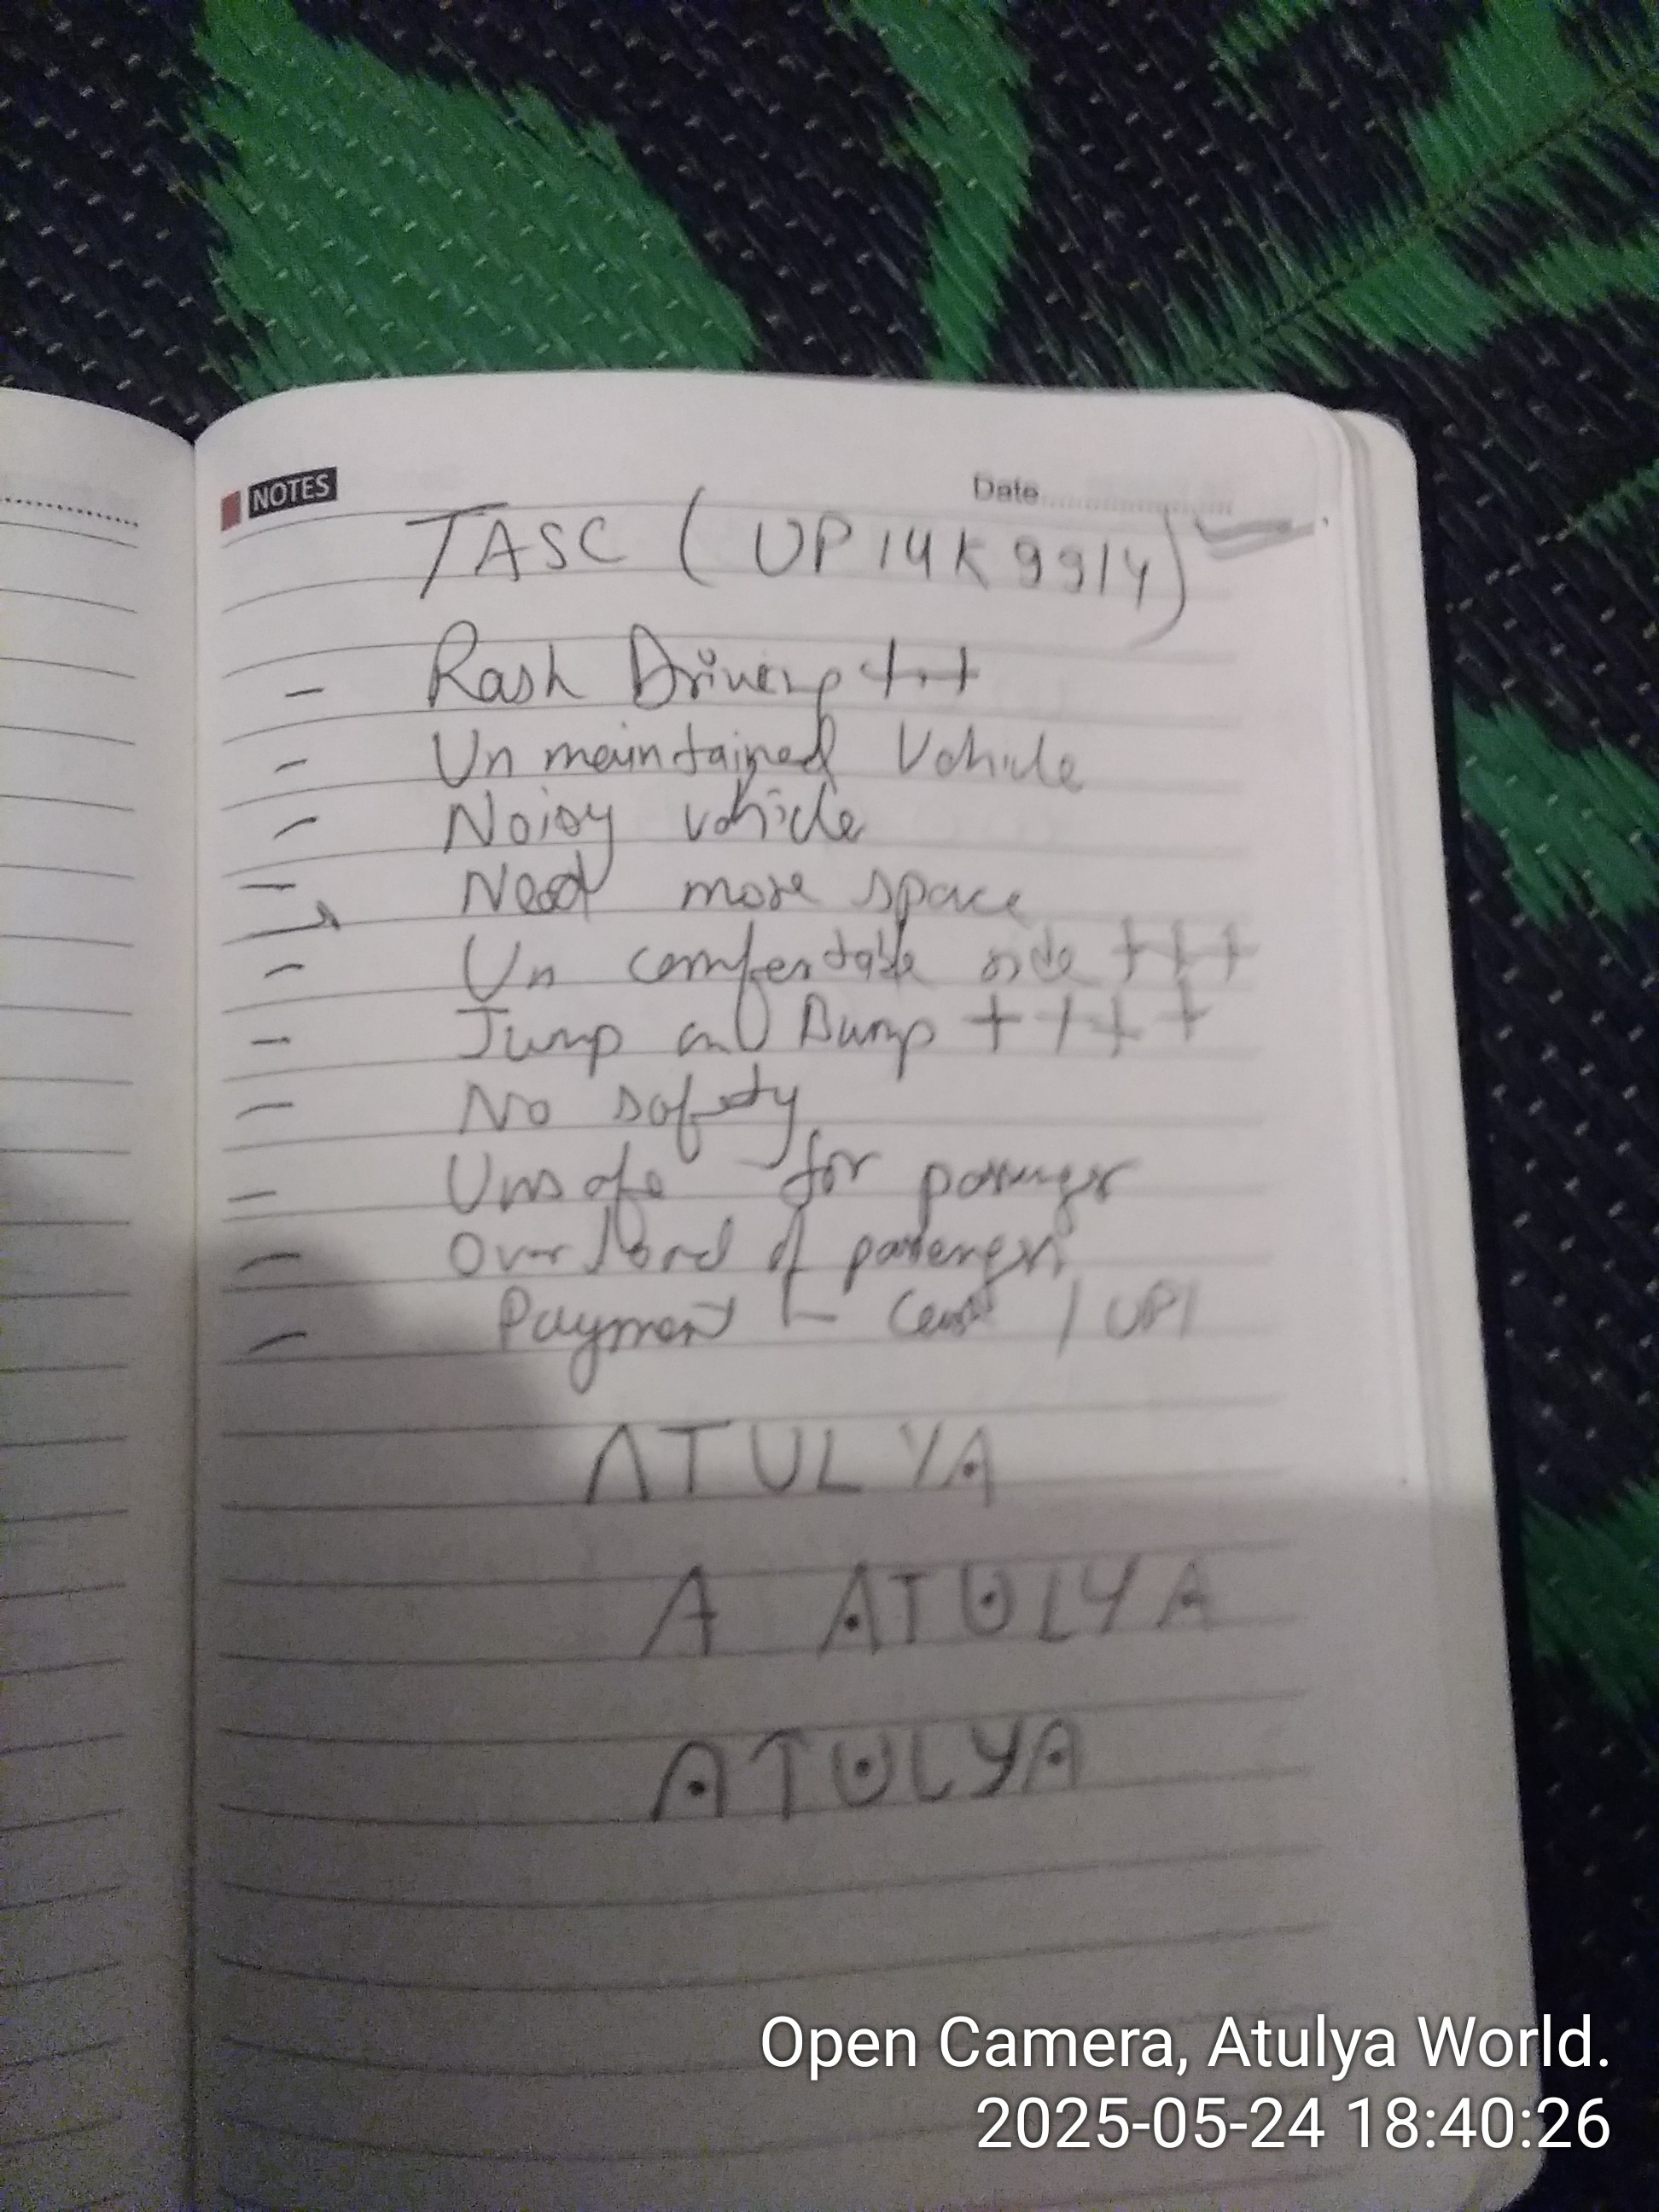 NOTES
Date
TASC ( UP14K9914)
- Rash Driving ++
- Un maintained Vehicle
- Noisy vehicle
- Need more space
- Un comfertable ride +++
- Jump and Bump ++++
- No safety
- Unsafe for passenger
- Over load of passenger
- Payment - Cash / UPI
ATULYA
A ATULYA
ATULYA
Open Camera, Atulya World.
2025-05-24 18:40:26